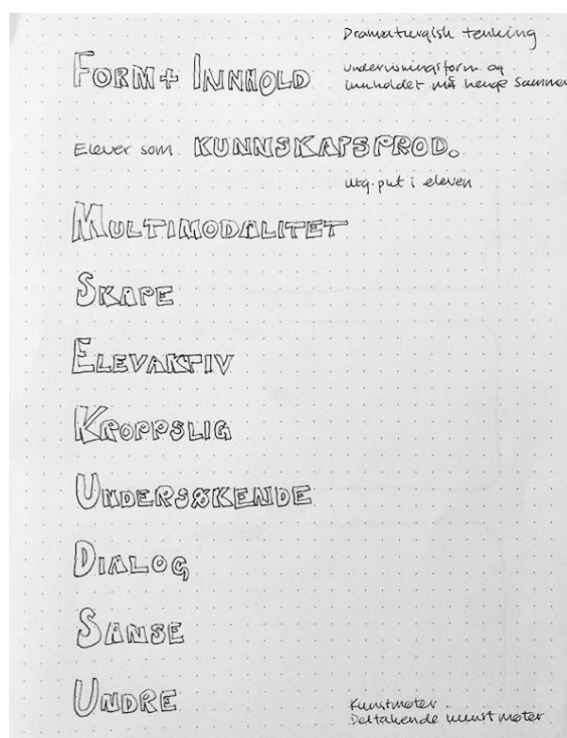 Dramaturgisk tenking
FORM + INNHOLD
undervisningsform og
innholdet må henge sammen
Elever som KUNNSKAPSPROD.
utg.put i eleven
MULTIMODALITET
SKAPE
ELEVAKTIV
KROPPSLIG
UNDERSØKENDE
DIALOG
SANSE
UNDRE
Kunstmøter
Deltakende kunstmøter